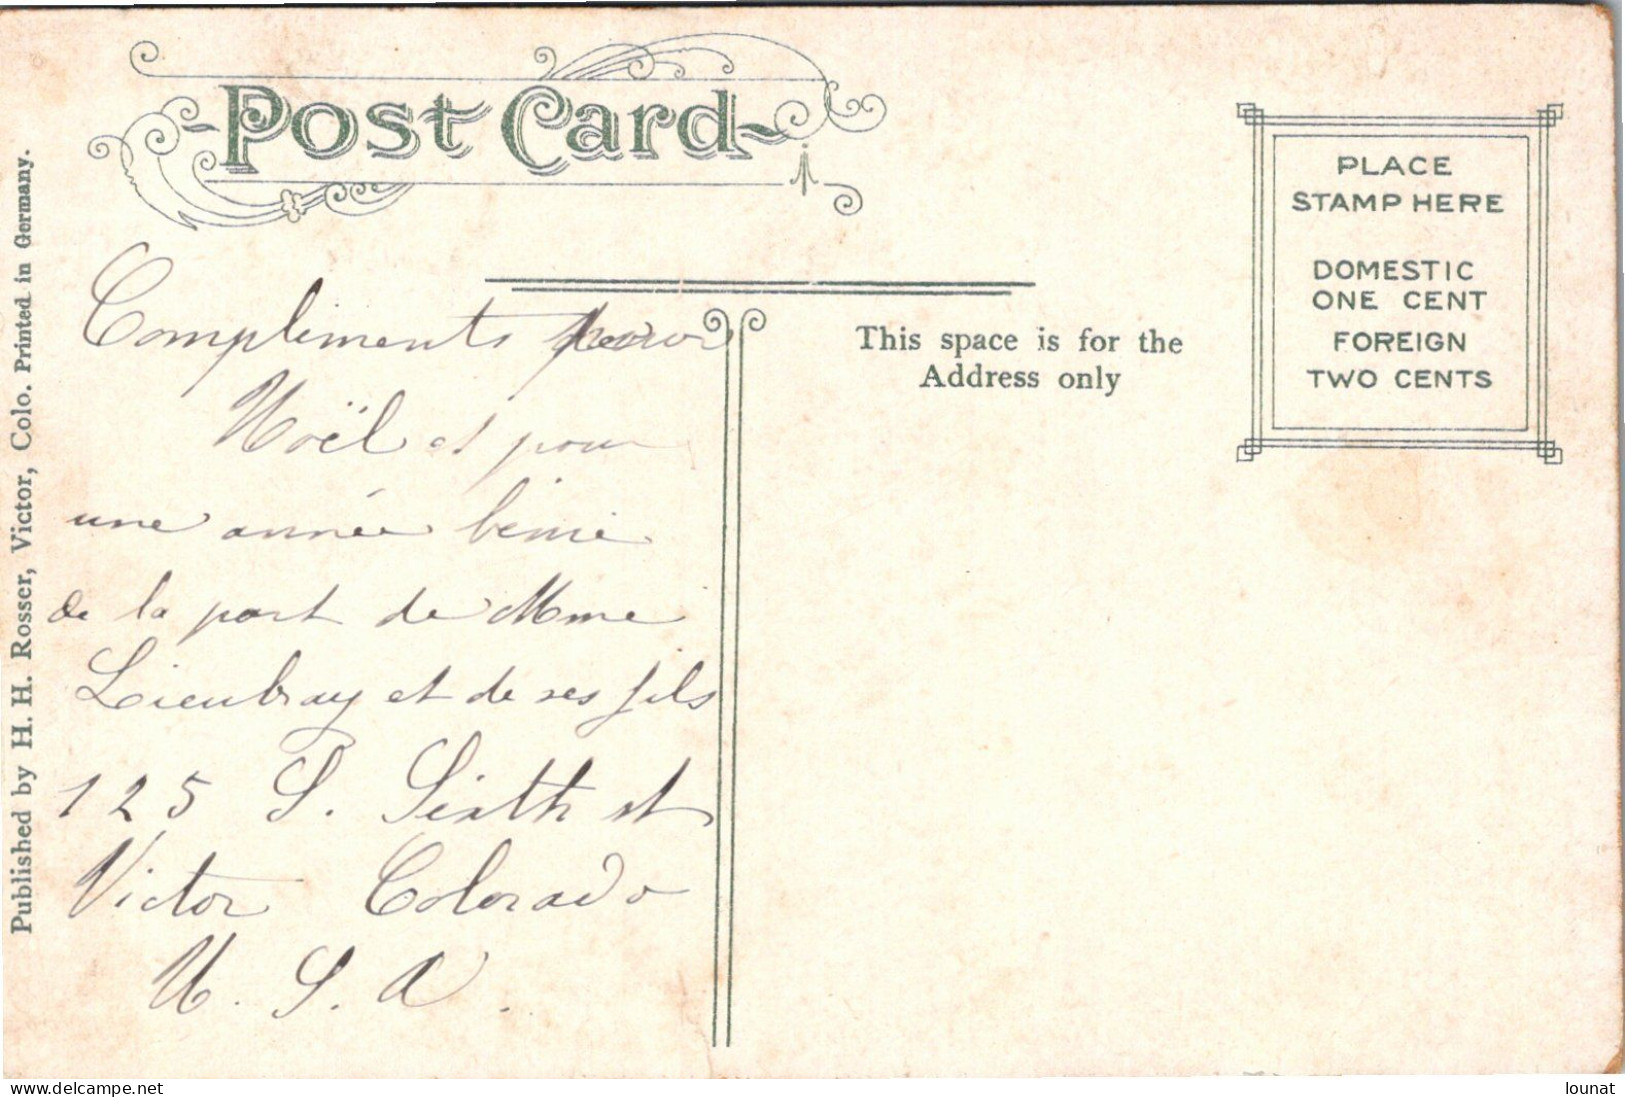 Post Card
PLACE
STAMP HERE
DOMESTIC
ONE CENT
FOREIGN
TWO CENTS
This space is for the
Address only
Compliments pour
Noël et pour
une année bénie
de la part de Mme
Lieubray et de ses fils
125 S. Sixth st
Victor Colorado
U. S. A.
Published by H. H. Rosser, Victor, Colo. Printed in Germany.
www.delcampe.net
lounat